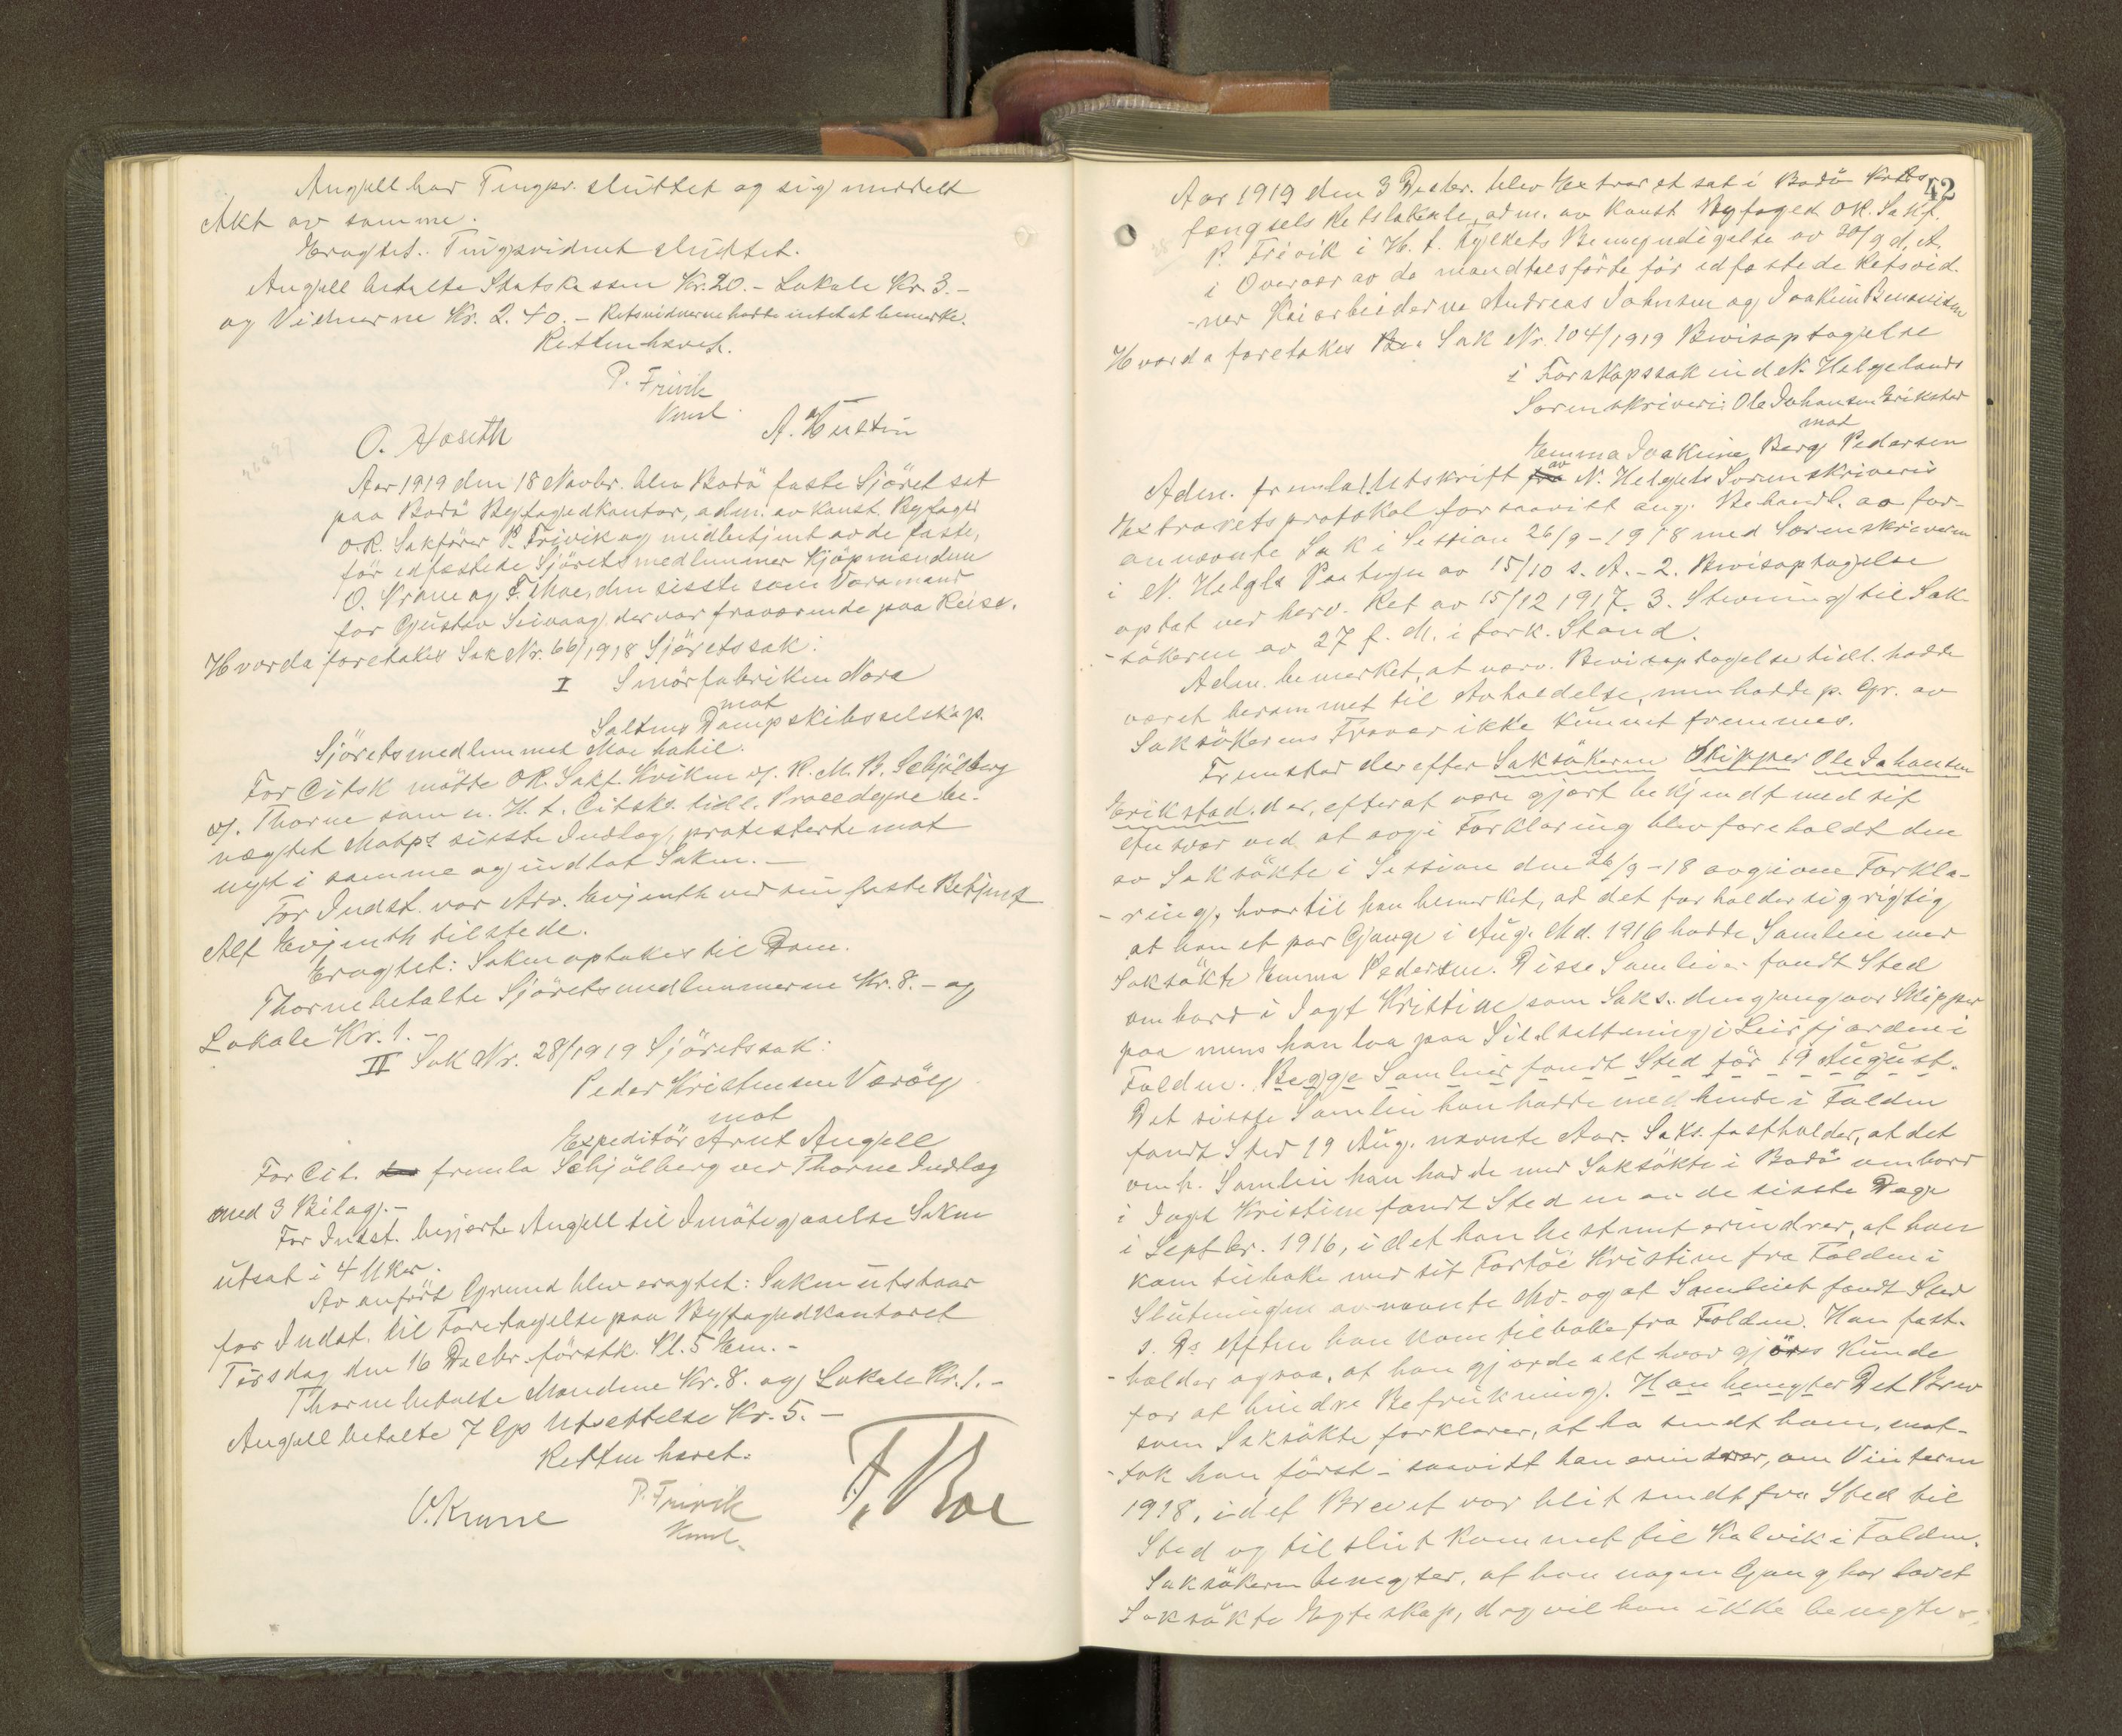 Angell har Tingsv. sluttet og sig meddelt
Akt av samme.
Eragtet: Tingsvidnet sluttet.
Angell betalte Statskassen Kr. 20.- Lokale Kr. 3.-
og Vidnerne Kr. 2.40.- Retsvidnerne hadde intet at bemerke.
Retten hævet.
P. Frivik
Konst.
O. Hoseth
A. Hustin
Aar 1919 den 18 Novbr. blev Bodö faste Sjöret sat
paa Bodö Byfogedkontor, adm. av konst. Byfoged
O.R. Sakförer P. Frivik og meddbetjent av de faste,
för edfæstede Sjöretsmedlemmer Kjöpmændene
O. Krane og F. Moe, den sisste som Varamand
for Gustav Seivaag, der var fraværende paa Reise.
Hvorda foretakes Sak Nr. 66/1918 Sjöretssak:
I Smörfabriken Nora
mot
Saltens Dampskibsselskap.
Sjöretsmedlemmet Moe habil.
For Citsk mötte OR. Sakf. Kviken v/. R. M. B. Schjölberg
v/. Thorne som n. H. t. Citsks. tidl. Procedyre be-
nægtet Motps sisste Indlæg, protesterte mot
nyt i samme og indlot Saken.-
For Indst. var Adv. Evjenth ved sin faste Betjent
Alf Evjenth tilstede.
Eragtet: Saken optakes til Dom.
Thorne betalte Sjöretsmedlemmerne Kr. 8.- og
Lokale Kr. 1.-
II Sak Nr. 28/1919 Sjöretssak:
Peder Kristensen Væröy
mot
Expeditör Arnt Angell
For Cit. fremla Schjölberg ved Thorne Indlæg
med 3 Bilag.-
For Indst. begjærte Angell til Imötegaaelse Saken
utsat i 4 Uker.
Av anfört Grund blev eragtet: Saken utstaar
for Indst. til Foretagelse paa Byfogedkontoret
Tirsdag den 16 Decbr. förstk. Kl. 5 Em.-
Thorne betalte Mændene Kr. 8. og Lokale Kr. 1.-
Angell betalte 7 Utsettelse Kr. 5.-
Retten hævet.
O. Krane
P. Frivik
Konst.
F. Moe
42
Aar 1919 den 3 Decbr. blev Extraret sat i Bodö Krets-
fængsels Retslokale, adm. av konst Byfoged OR. Sakf.
P. Frivik i H. t. Fylkets Bemyndigelse av 20/9 d. A.
i Overvær av de mandtalsförte för edfæstede Retsvid-
-ner Kaiarbeiderne Andreas Johnsen og Joakim Benonisen
Hvorda foretakes Sak Nr. 104/1919 Bevisoptagelse
i Farskapssak ind N. Helgelands
Sorenskriveri: Ole Johansen Erikstad
mot
Emma Joakime Berg Pedersen
Adm. fremla 1. Utskrift av N. Helgels Sorenskriveris
Extraretsprotokol forsaavitt ang. Behandl. av for-
annævnte Sak i Session 26/9-1918 med Sorenskriveren
i N. Helgls Paategn av 15/10 s. A. - 2. Bevisoptagelse
optat ved herv. Ret av 15/12 1917. 3. Stevning til Sak-
-sökeren av 27 f. M. i fork. Stand.
Adm. bemerket, at nærv. Bevisoptagelse tidl. hadde
været berammet til Avholdelse, men hadde p. Gr. av
Saksökerens Fravær ikke kunnet fremmes.
Fremstod derefter Saksökeren Skipper Ole Johansen
Erikstad, der, efter at være gjort bekjendt med sit
Ansvar ved at avgi Forklaring blev foreholdt den
av Saksökte i Session den 26/9-18 avgivne Forkla-
-ring, hvortil han bemerket, at det forholder sig rigtig
at han et par Gange i Aug. Md. 1916 hadde Samleie med
Saksökte Emma Pedersen. Disse Samleier fandt Sted
ombord i Jagt Kristine som Saks. dengang var Skipper
paa mens han laa paa Sildsætning i Leirfjorden i
Folden. Begge Samleier fandt Sted för 19 August.
Det sisste Samleie han hadde med hende i Folden
fandt Sted 19 Aug. nævnte Aar. Saks. fastholder, at det
omh. Samleie han hadde med Saksökte i Bodö ombord
i Jagt Kristine fandt Sted en av de sisste Dage
i Septbr. 1916, idet han bestemt erindrer, at han
kom tilbake med sit Fartöi Kristine fra Folden i
Slutningen av nævnte Md. og at Samleiet fandt Sted
s. Ds. Aften han kom tilbake fra Folden. Han fast-
-holder ogsaa, at han gjorde alt hvad gjöres kunde
for at hindre Befrukning. Han benegter Det Brev
som Saksökte forklarer, at ha sendt ham, mot-
-tok han först - saavitt han erindrer, om Vinteren
1918, idet Brevet var blit sendt fra Sted til
Sted og tilslut kommet til Kalvik i Folden.
Saksökeren benegter, at han nogen Gang har lovet
Saksökte Egteskap, dog vil han ikke benegte